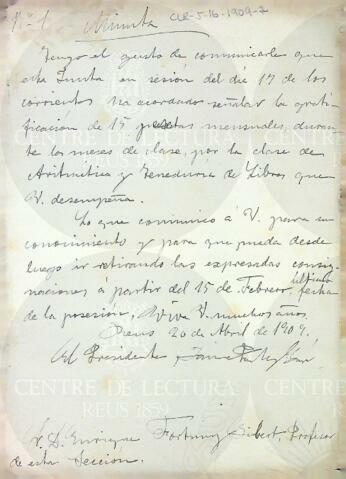 Nº 1 Minuta CLR-5-16-1909-2
Tengo el gusto de comunicarle que
esta Junta en sesión del dia 17 de los
corrientes ha acordado señalar la grati-
ficacion de 15 pesetas mensuales, duran-
te los meses de clase, por la clase de
Aritmética y Teneduría de Libros que
V. desempeña.
Lo que comunico á V. para su
conocimiento y para que pueda desde
luego ir retirando las expresadas consig-
naciones á partir del 15 de Febrero último fecha
de la posesión. Viva V. muchos años.
Reus 20 de Abril de 1909.
El Presidente
CENTRE DE LECTURA
REUS 1859
Sr. D. Enrique Fortuny Gibert, Profesor
de esta Sección.